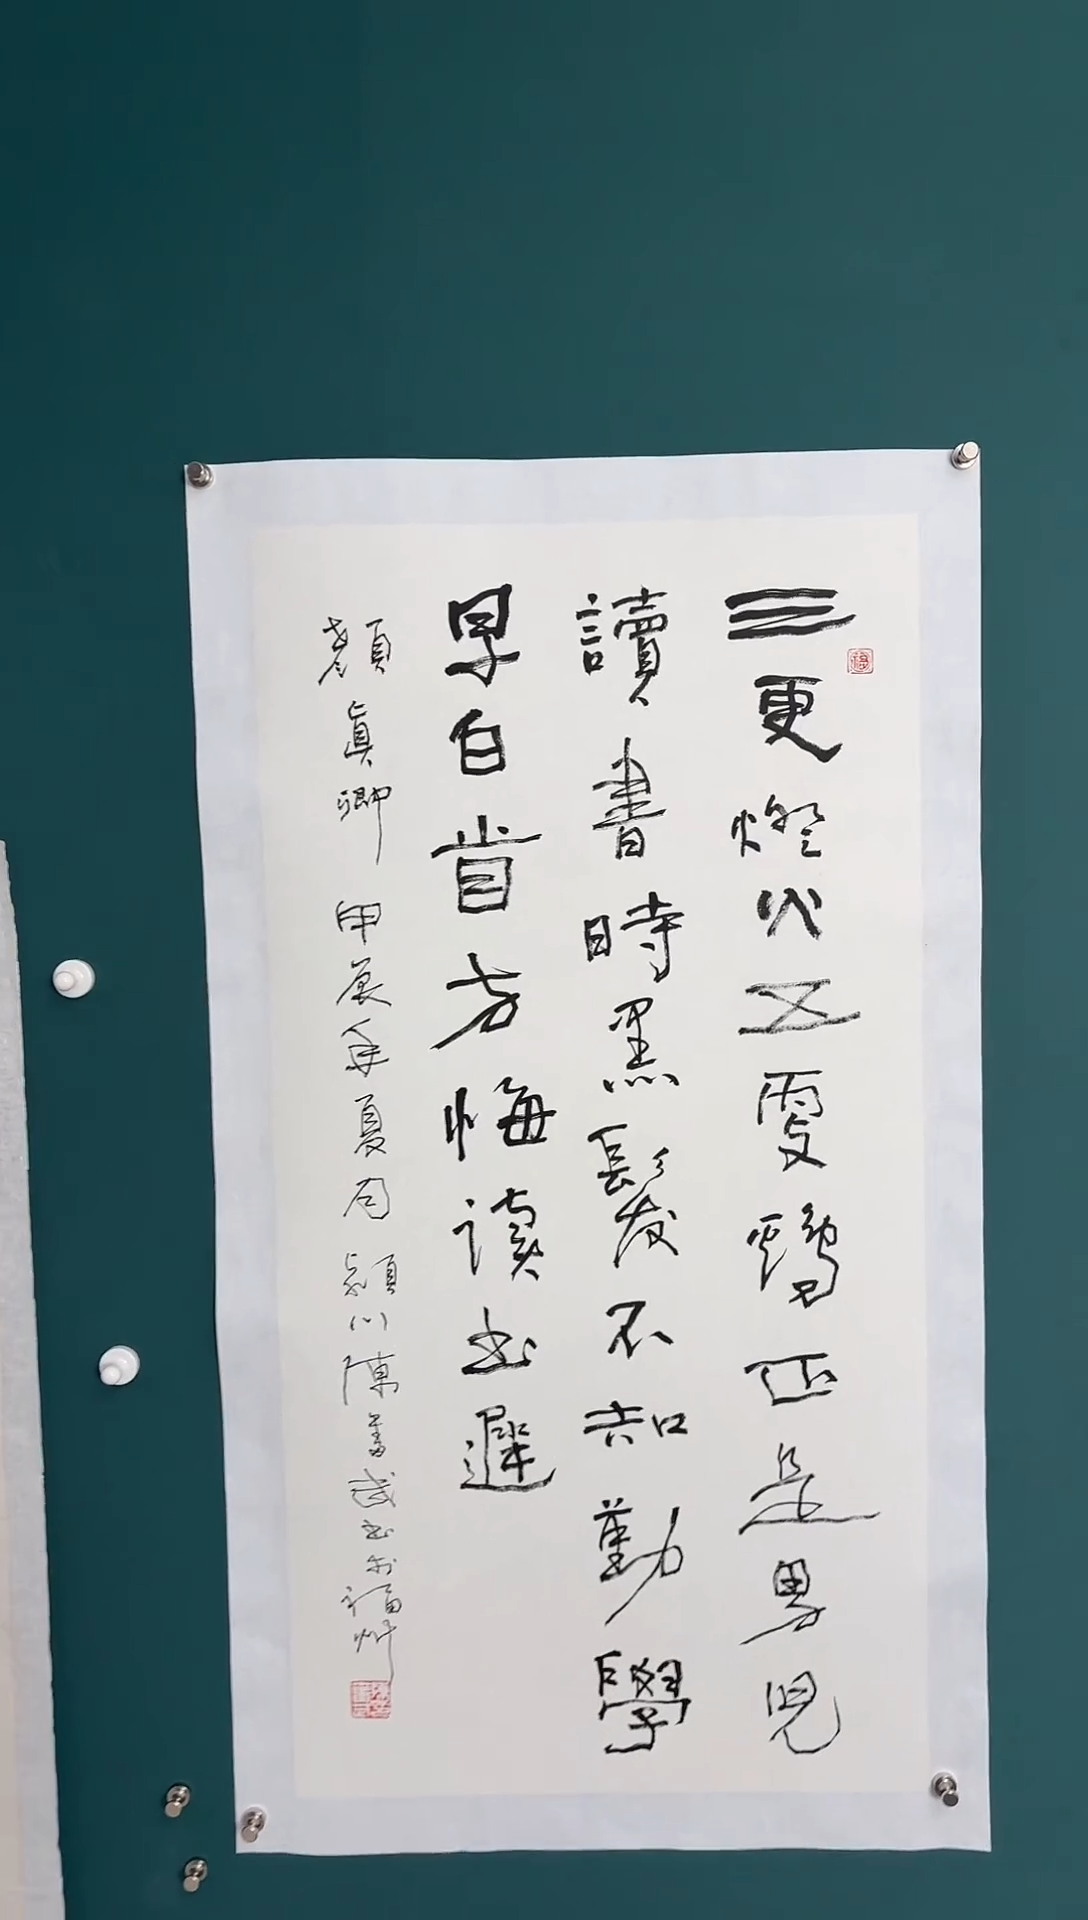 三更燈火五更鷄正是男児
讀書時黑髮不知勤學
早白首方悔讀书遲
顏真卿 甲辰年夏月 潁川陳書武书於福州